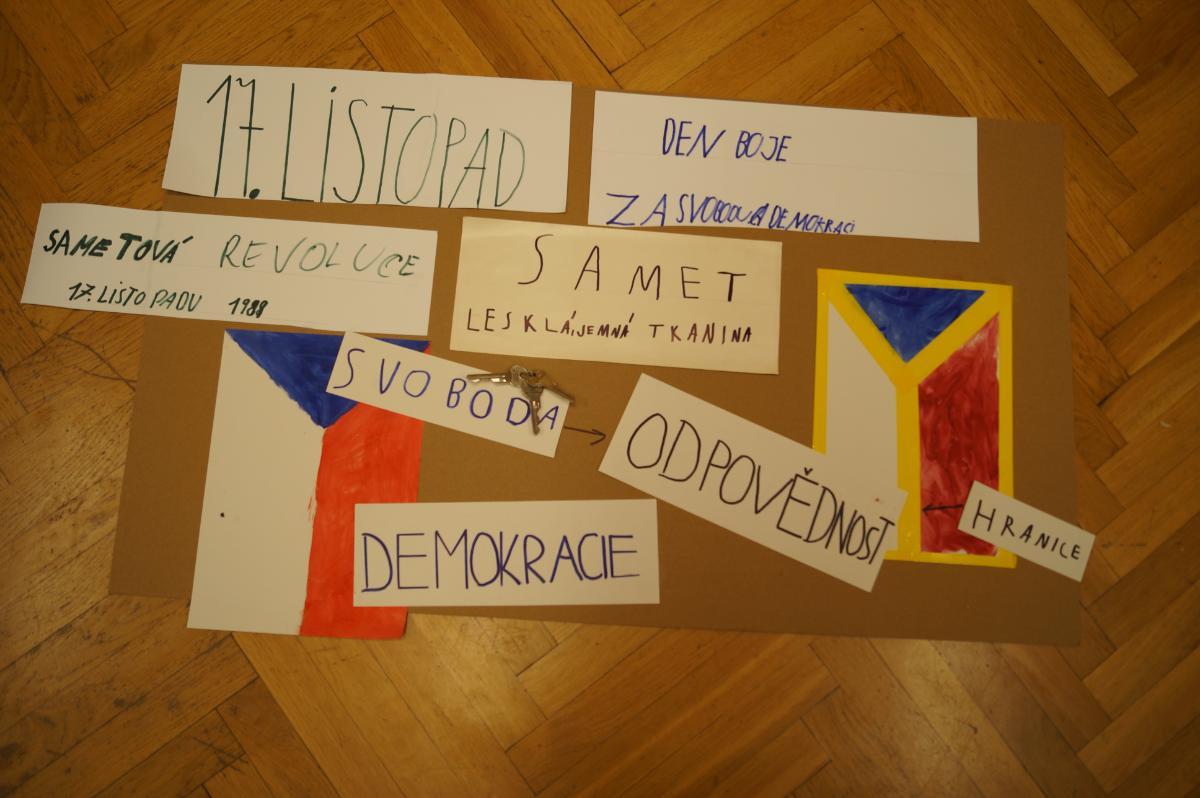 17. LISTOPAD
DEN BOJE
ZA SVOBODU A DEMOKRACI
SAMETOVÁ REVOLUCE
17. LISTOPADU 1988
SAMET
LESKLÁ,JEMNÁ TKANINA
SVOBODA
ODPOVĚDNOST
HRANICE
DEMOKRACIE